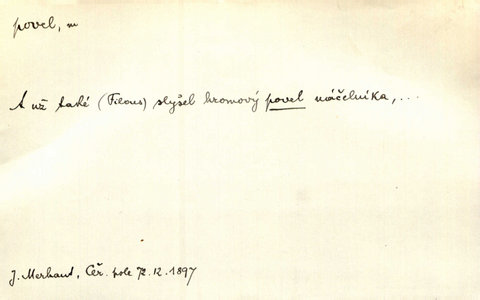 povel, m
A už také (Filous) slyšel hromový povel náčelníka,...
J. Merhaut, Čer. pole 12.1897